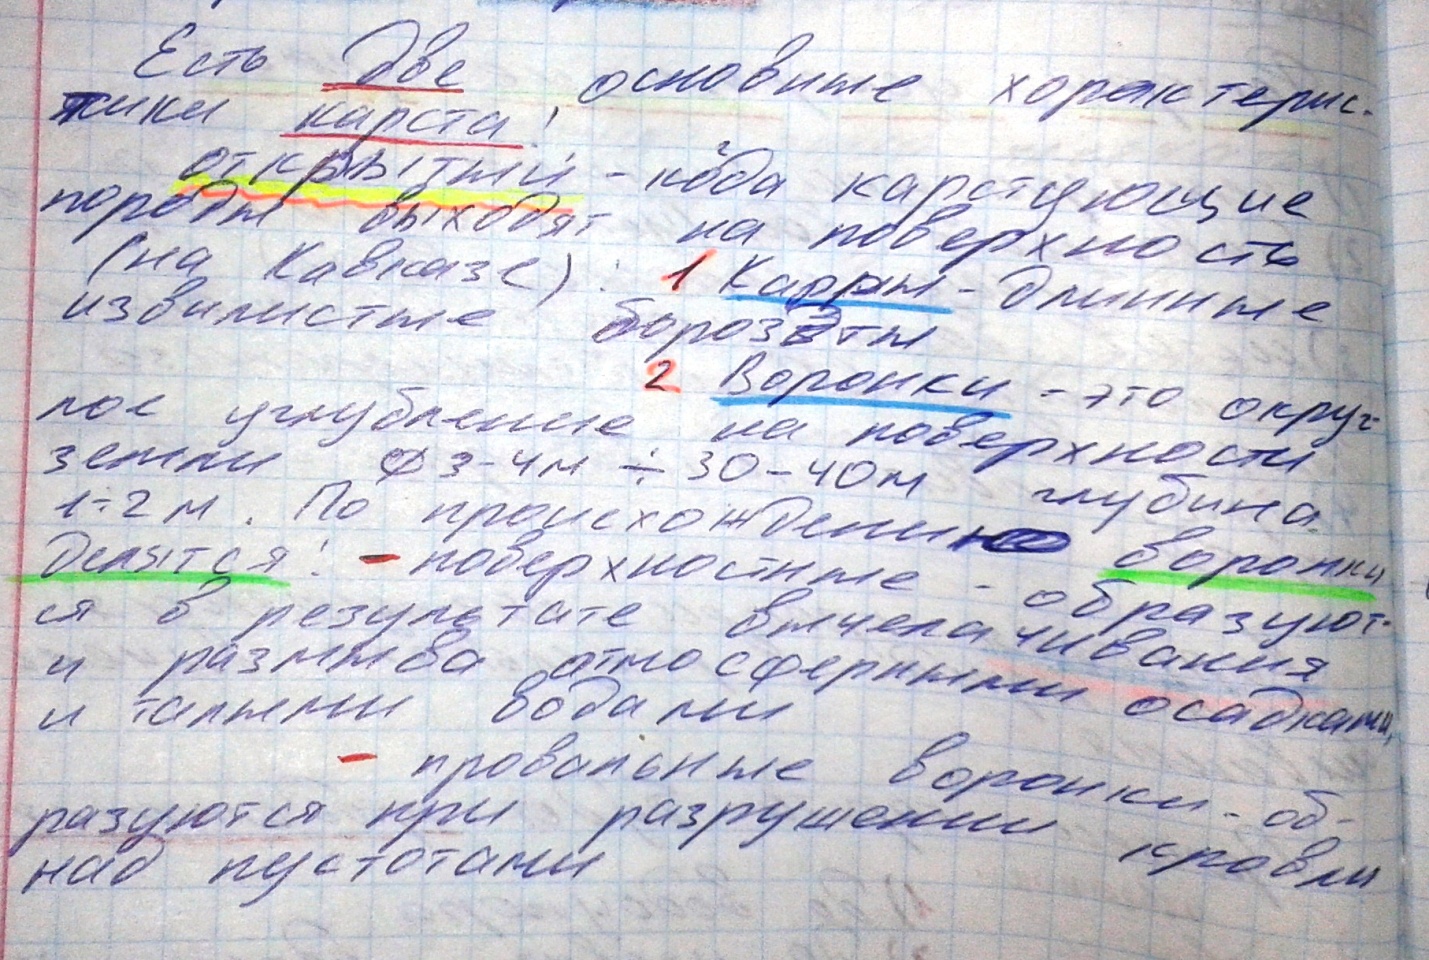 Есть две основные характерис-
тики карста:
открытый - когда карстующие
породы выходят на поверхность
(на Кавказе): 1 Карры - длинные
извилистые борозды
2 Воронки - это округ-
лое углубление на поверхности
земли ф 3-4м ÷ 30-40м глубина
1÷2 м. По происхождению воронки
делятся: - поверхностные - образуют-
ся в результате выщелачивания
и размыва атмосферными осадками,
и талыми водами
- провальные воронки - об-
разуются при разрушении кровли
над пустотами